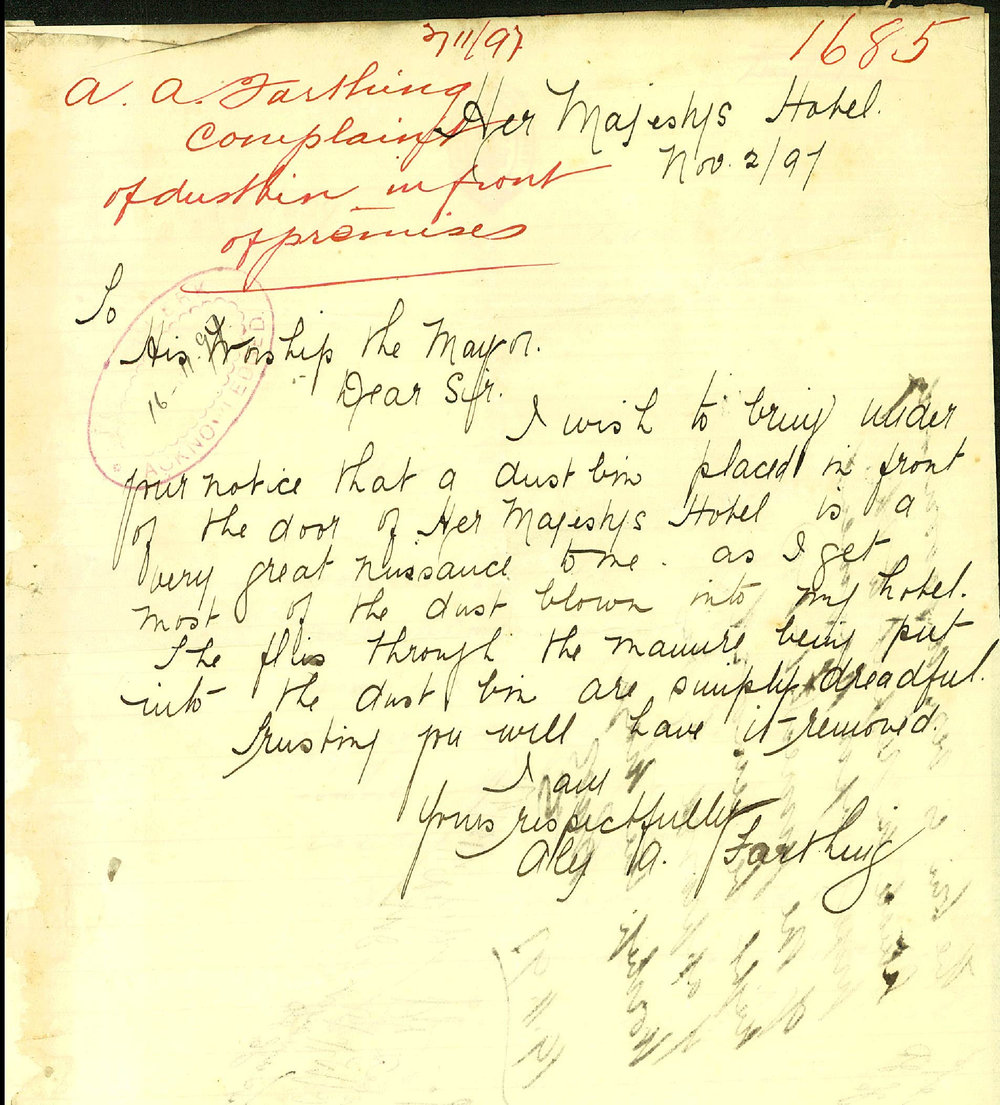 2/11/97
1685
A. A. Farthing
Complaint
of dustbin in front
of premises
Her Majestys Hotel.
Nov. 2/97
To
His Worship the Mayor.
Dear Sir.
I wish to bring under
your notice that a dust bin placed in front
of the door of Her Majestys Hotel is a
very great nuissance to me. as I get
most of the dust blown into my hotel.
The flies through the manure being put
into the dust bin are simply dreadful.
Trusting you will have it removed.
I am
Yours respectfully
Alex A. Farthing
16-11.97
ACKNOWLEDGED.